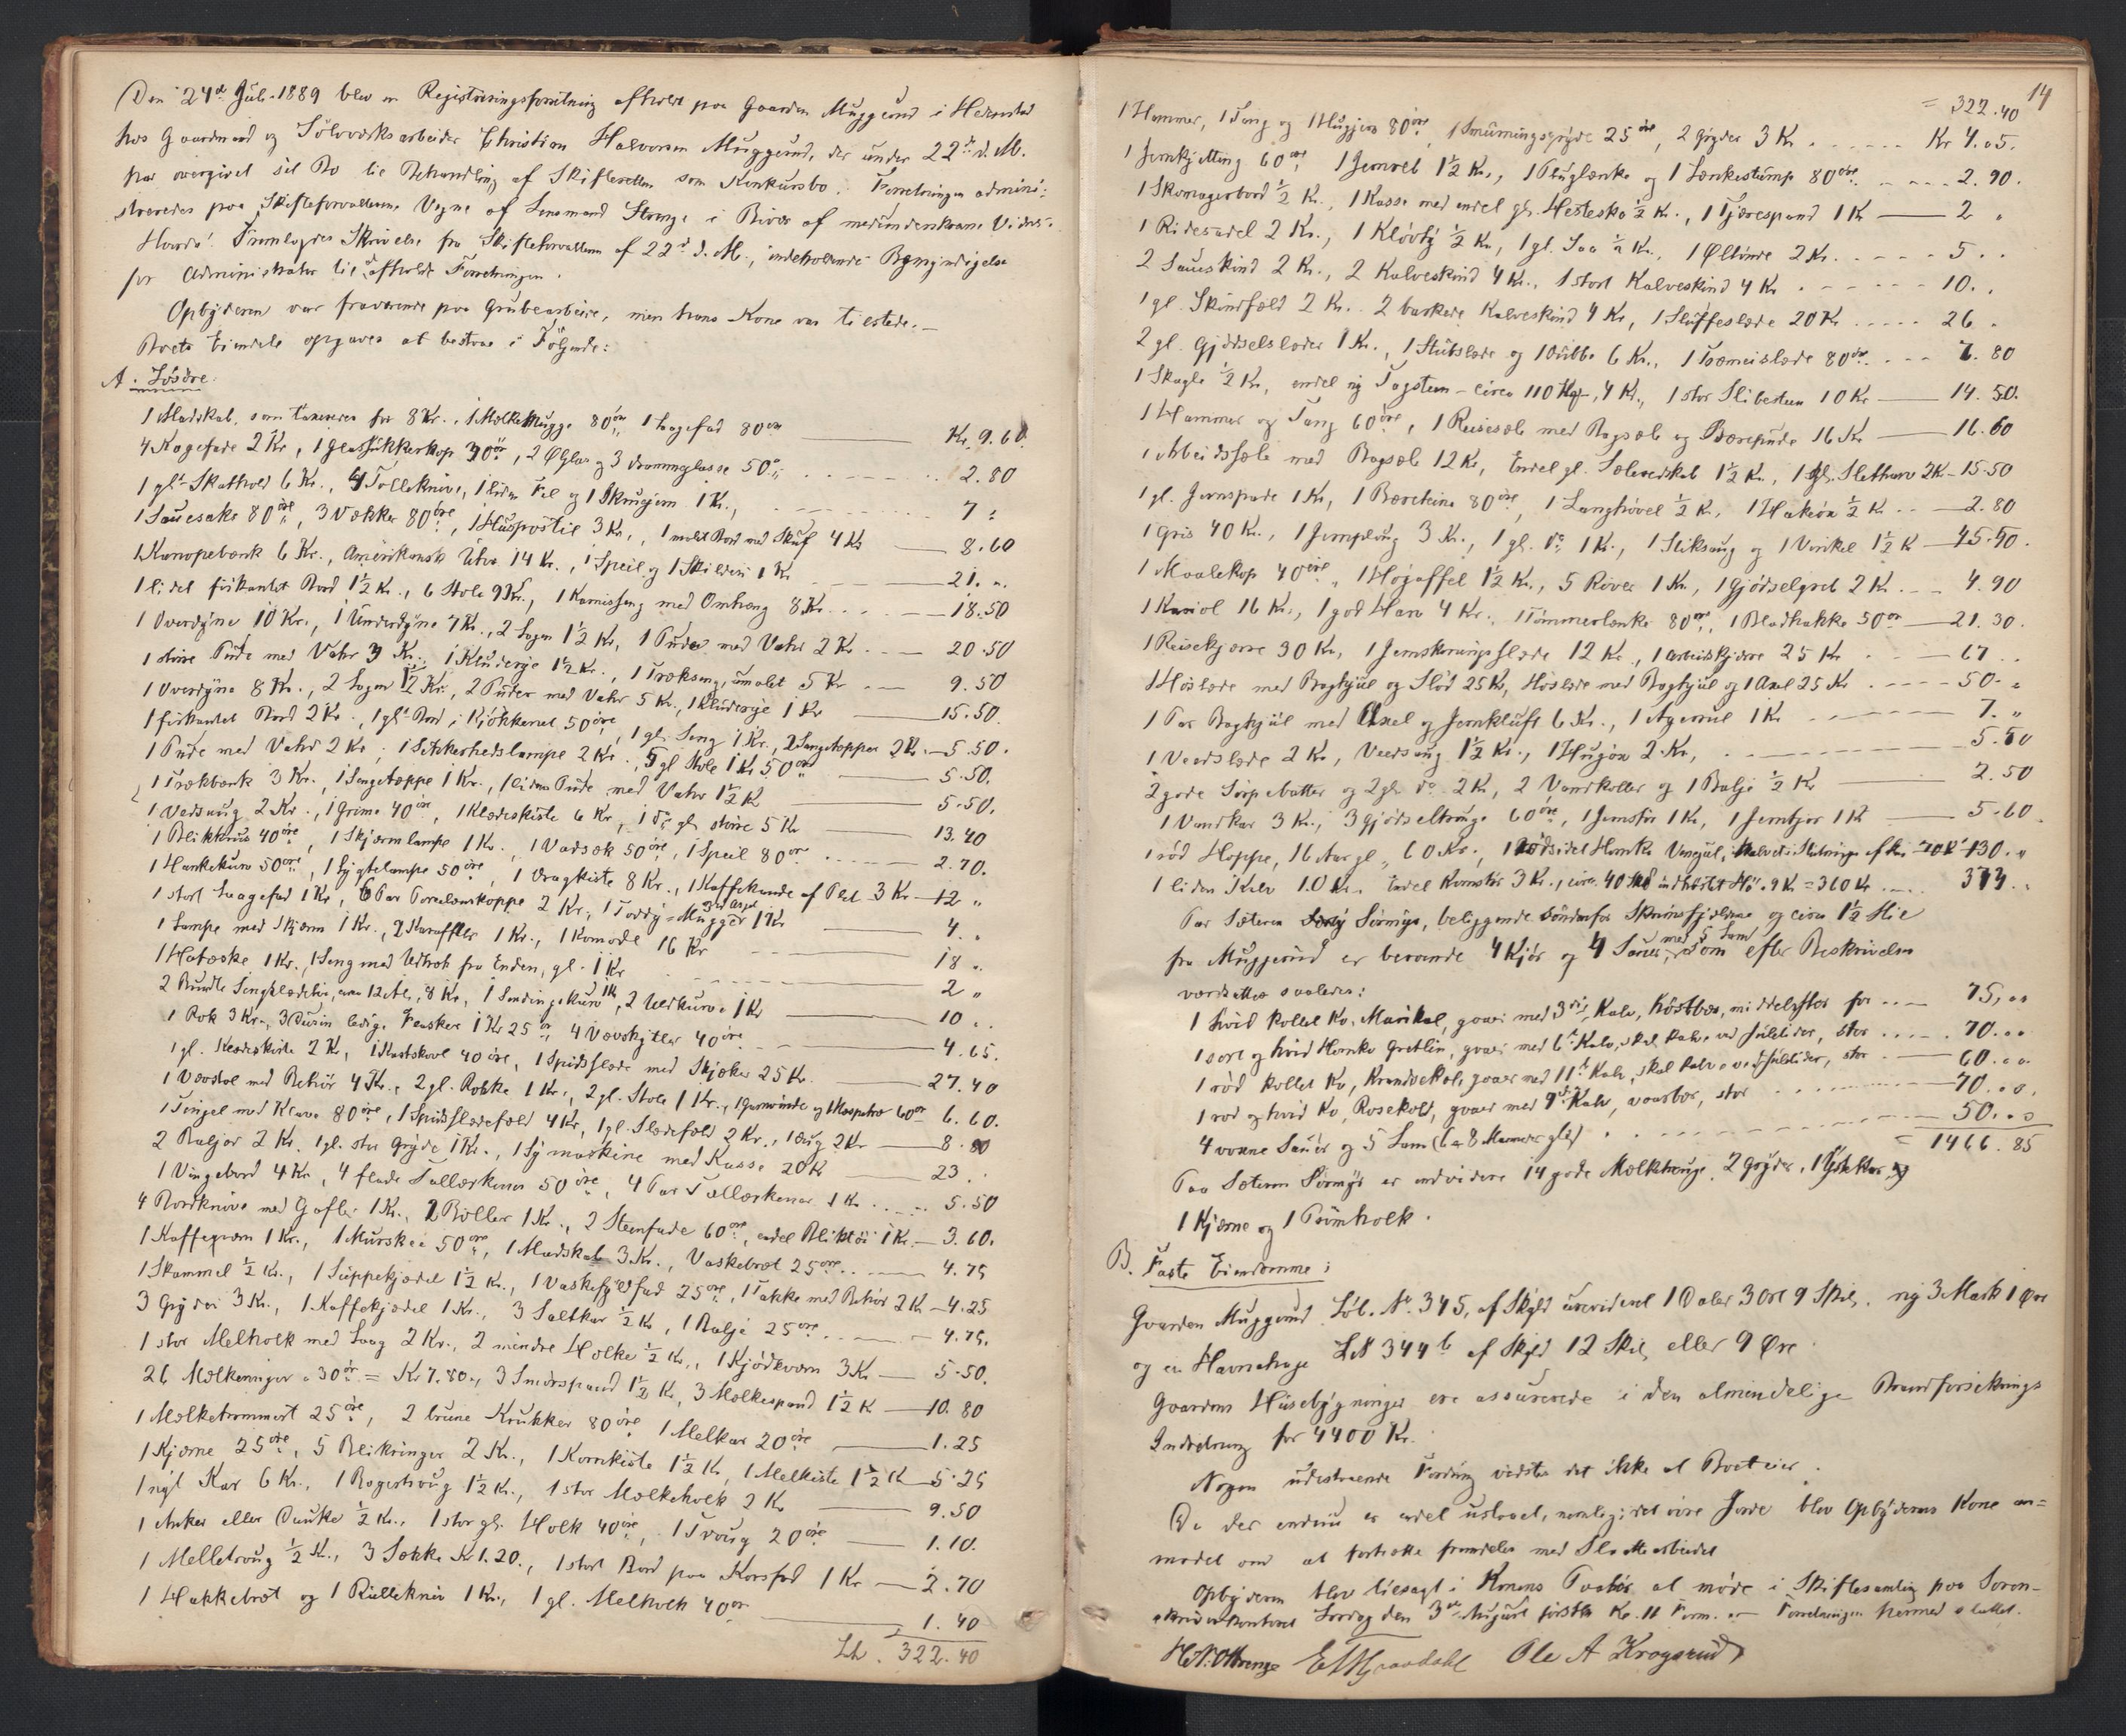 Den 24de Juli 1889 blev en Registreringsforretning afholdt paa Gaarden Muggerud i Hedenstad
hos Gaardmand og Sølvverksarbeider Christian Halvorsen Muggerud, der under 22de d. M.
har overgivet sit Bo til Behandling af Skifteretten som Konkursbo. Forretningen admini-
streredes paa Skifteforvalterens Vegne af Lensmand Strenge i Bivær af medundertegnede Vidner.
Hvorda! Fremlagdes Skrivelse fra Skifteforvalteren af 22de d. M., indeholdende Bemyndigelse
for Administrator til at afholde Forretningen.
Opbyderen var fraværende paa Grubearbeide, men hans Kone var tilstede. —
Boets Eiendele opgaves at bestaa i Følgende:
A. Løsøre:
1 Madskab, som taxeres for 8 Kr., 1 Melkemugge 80 øre, 1 Laagefad 80 øre — Kr. 9.60.
4 Kagefade 2 Kr, 1 Glassukkerkop 30 øre, 2 Ølglas og 3 Dramglasse 50 øre — 2.80
1 gl. Skathold 6 Kr., 4 Tolleknive, 1 liden Fil og 1 Skrugjern 1 Kr., — 7 "
1 Sauesaks 80 øre, 3 Vækker 80 øre, 1 Huspostil 3 Kr., 1 malt Bord med Skuf 4 Kr — 8.60
1 Kanapebænk 6 Kr., Amerikansk Uhr 14 Kr., 1 Speil og 1 Skilderi 1 Kr — 21. "
1 lidet firkantet Bord 1½ Kr., 6 Stole 9 Kr., 1 Karnisseng med Omhæng 8 Kr. — 18.50
1 Overdyne 10 Kr., 1 Underdyne 7 Kr., 2 Lagen 1½ Kr, 1 Pude med Vahr 2 Kr — 20.50
1 större Pude med Vahr 3 Kr., 1 Kludeenje 1½ Kr., 1 Træksæng, umalet 5 Kr — 9.50
1 Overdyne 8 Kr., 2 Lagen 1½ Kr., 2 Puder med Vahr 5 Kr., 1 Kludeenje 1 Kr — 15.50.
1 firkantet Bord 2 Kr., 1 gl. Bord i Kjøkkenet 50 øre, 1 gl. Seng 1 Kr., 2 Sengetæpper 2 Kr. — 5.50.
1 Pude med Vahr 2 Kr., 1 Sikkerhedslampe 2 Kr., 5 gl Stole 1 Kr 50 øre — 5.50.
1 Trækbænk 3 Kr., 1 Sengetæppe 1 Kr., 1 liden Pude med Vahr 1½ Kr — 5.50.
1 Vedsaug 2 Kr., 1 Grime 40 øre, 1 Klædeskiste 6 Kr, 1 do gl. större 5 Kr — 13.40
1 Blikkrus 40 øre, 1 Skjærmlampe 1 Kr., 1 Vadsæk 50 øre, 1 Speil 80 øre — 2.70.
1 Hankekurv 50 øre, 1 Lygtelampe 50 øre, 1 Dragkiste 8 Kr., 1 Kaffekande af Plet 3 Kr — 12 "
1 stort Laagefad 1 Kr, 6 Par Porcelænskopper 2 Kr., 1 Toddy-Mugger 1 Kr — 4. "
1 Lampe med Skjærm 1 Kr., 2 Karafler 1 Kr., 1 Komode 16 Kr — 18 "
1 Hatæske 1 Kr., 1 Seng med Udtræk fra Enden, gl. 1 Kr — 2 "
2 Bundte Sengklædetøi, circa 12 Al., 8 Kr., 1 Sendingskurv 1 Kr, 2 Uldkurve 1 Kr — 10 "
1 Rok 3 Kr., 3 Dusin ledige Flasker 1 Kr 25 øre, 4 Vævskytler 40 øre — 4.65.
1 gl. Klædeskiste 2 Kr, 1 Kastskovl 40 øre, 1 Spidsslæde med Skjæker 25 Kr. — 27.40
1 Vævstol med Behör 4 Kr., 2 gl. Rokke 1 Kr., 2 gl. Stole 1 Kr., 1 Garnvinde og 1 Haspetræ 60 øre — 6.60.
1 Tingel med Klave 80 øre, 1 Spidsslædefæld 4 Kr, 1 gl. Slædefæld 2 Kr., 1 Aag 2 Kr — 8.80
2 Baljer 2 Kr, 1 gl. stor Gryde 1 Kr., 1 Symaskine med Kasse 20 Kr — 23 .
1 Vingebord 4 Kr, 4 flade Tallærkener 50 øre, 4 Par Tallærkener 1 Kr. — 5.50
4 Bordknive med Gafler 1 Kr., 2 Boller 1 Kr., 2 Stenfade 60 øre, endel Bliktöi 1 Kr. — 3.60.
1 Kaffekværn 1 Kr., 1 Murskee 50 øre, 1 Madskab 3 Kr., Vaskebræt 25 øre. — 4.75
1 Skammel ½ Kr., 1 Suppekjedel 1½ Kr., 1 Vaskefad 25 øre, 1 Takke med Behör 2 Kr — 4.25
3 Gryder 3 Kr., 1 Kaffekjedel 1 Kr., 3 Saltkar ½ Kr, 1 Balje 25 øre — 4.75.
1 stor Melholk med Laag 2 Kr., 2 mindre Holke ½ Kr., 1 Kjödkværn 3 Kr — 5.50.
26 Melkeringer a 30 øre = Kr 7.80., 3 Smörspand 1½ Kr, 3 Melkespand 1½ Kr — 10.80
1 Melketrommert 25 øre, 2 brune Krukker 80 øre 1 Melkar 20 øre — 1.25
1 Kjærne 25 øre, 5 Blikringer 2 Kr., 1 Kornkiste 1½ Kr, 1 Melkiste 1½ Kr — 5.25
1 nyt Kar 6 Kr., 1 Bagertroug 1½ Kr., 1 stor Mælkeholk 2 Kr — 9.50
1 Anker eller Dunke ½ Kr., 1 stor gl. Holk 40 øre, 1 Troug 20 øre — 1.10.
1 Melletroug ½ Kr., 3 Sække Kr 1.20., 1 stort Bord paa Korsfod 1 Kr — 2.70
1 Hakkebræt og 1 Rullekniv 1 Kr., 1 gl. Melholk 40 øre — 1.40
Lh. 322.40
14
= 322.40
1 Hammer, 1 Tang og 1 Hugjern 80 øre, 1 Smurningsgryde 25 øre, 2 Gryder 3 Kr — Kr 4.05.
1 Jernkjetting 60 øre 1 Jernvet 1½ Kr., 1 Pluglænke og 1 Lænkestump 80 øre — 2.90.
1 Skomagerbord ½ Kr., 1 Kasse med endel gl. Hestesko ½ Kr., 1 Tjærespand 1 Kr — 2 "
1 Ridesadel 2 Kr., 1 Kløvtøi ½ Kr, 1 gl. Saa ½ Kr., 1 Øltönde 2 Kr. — 5 . .
2 Saueskind 2 Kr., 2 Kalveskind 4 Kr., 1 stort Kalveskind 4 Kr — 10. .
1 gl. Skindfæld 2 Kr. 2 barkede Kalveskind 4 Kr, 1 Sluffeslæde 20 Kr — 26 .
2 gl. Gjödselslæder 1 Kr., 1 Stutslæde og 1 Stubbe 6 Kr., 1 Tömmerslæde 80 øre — 7.80
1 Skagle ½ Kr, endel ny Tagsten — circa 110 Kast, 4 Kr., 1 stor Slibesten 10 Kr — 14.50.
1 Hammer og Tang 60 øre, 1 Reisesæle med Bagsæle og Bærepude 16 Kr — 16.60
1 Arbeidssæle med Bagsæle 12 Kr, Endel gl. Sæleredskab 1½ Kr., 1 gl. Sletharv 2 Kr — 15.50
1 gl. Jernspade 1 Kr, 1 Bærekeine 80 øre, 1 Langhövel ½ Kr, 1 Hakeöx ½ Kr — 2.80
1 Gris 40 Kr., 1 Jernploug 3 Kr., 1 gl. do 1 Kr., 1 Stiksaug og 1 Vinkel 1½ Kr — 45.50.
1 Maalekop 40 øre, 1 Högaffel 1½ Kr., 5 River 1 Kr, 1 Gjödselgreb 2 Kr. — 4.90
1 Kariol 16 Kr., 1 god Harv 4 Kr., 1 Tömmerlænke 80 øre, 1 Bladhakke 50 øre — 21.30.
1 Reisekjærre 30 Kr, 1 Jernskoningsslæde 12 Kr., 1 Arbeidskjærre 25 Kr — 67 . .
1 Höslæde med Baghjul og Slöd 25 Kr, Höslæde med Baghjul og 1 Axel 25 Kr — 50. "
1 Par Baghjul med Axel og Jernkluft 6 Kr., 1 Agerrul 1 Kr — 7. "
1 Veedslæde 2 Kr, Veedsaug 1½ Kr., 1 Hugöx 2 Kr, — 5.50
2 gode Sörpebøtter og 2 gl. do 2 Kr, 2 Vandkoller og 1 Balje ½ Kr — 2.50
1 Vandkar 3 Kr., 3 Gjödseltrouge 60 øre, 1 Jernstör 1 Kr, 1 Jerntjor 1 Kr — 5.60.
1 röd Hoppe, 16 Aar gl., 60 Kr., 1 rödsidet Hornko — 130. "
1 liden Kalv 10 Kr. Endel Kornstör 3 Kr., circa 40 indhöstet Hö a 9 Kr = 360 Kr — 373. .
Paa Sæteren Sörmyr, beliggende söndenfor Skrimsfjeldene og circa 1½ Mil
fra Muggerud er beroende 4 Kjör og 4 Sauer med 5 Lam, som efter Beskrivelsen
værdsættes saaledes:
1 hvid kollet Ko, Marikol, gaaer med 3die Kalv, höstbær, middelstor for — 75. " "
1 sort og hvid Hornko Gretlin, gaaer med 6te Kalv, skal kalve ved Juletider, stor — 70. " "
1 röd kollet Ko, Krandsekol, gaaer med 11te Kalv, skal kalve ved Juletider, stor — 60. " "
1 röd og hvid Ko, Rosekold, gaaer med 9de Kalv, vaarbær, stor — 70. " ".
4 voxne Sauer og 5 Lam (6 a 8 Maaneder gl.) — 50. " "
= 1466.85
Paa Sæteren Sörmyr er endvidere 14 gode Mælktrouge, 2 Gryder, 1 Ystekar,
1 Kjærne og 1 Primholk.
B. Faste Eiendomme:
Gaarden Muggerud Löb. No. 345, af Skyld urevideret 1 Daler 3 Ort 9 Skil, ny 3 Mark 1 Øre
og en Havnehage LN 344b af Skyld 12 Skil, eller 9 Øre.
Gaardens Husebygninger ere assurerede i den almindelige Brandforsikrings
Indretning for 4400 Kr.
Nogen udestaaende Fordring vidstes det ikke at Boet eier.
Da der endnu er endel uslaaet, nemlig det øvre Jorde blev Opbyderens Kone an-
modet om at fortsætte fremdeles med Slaattearbeidet
Opbyderen blev tilsagt i Konens Paahör at møde i Skiftesamling paa Soren-
skriverkontoret Lördag den 3die August förstk. Kl. 11 Form. — Forretningen hermed sluttet.
H. N. Strenge E H Graadahl Ole A Krogsrud